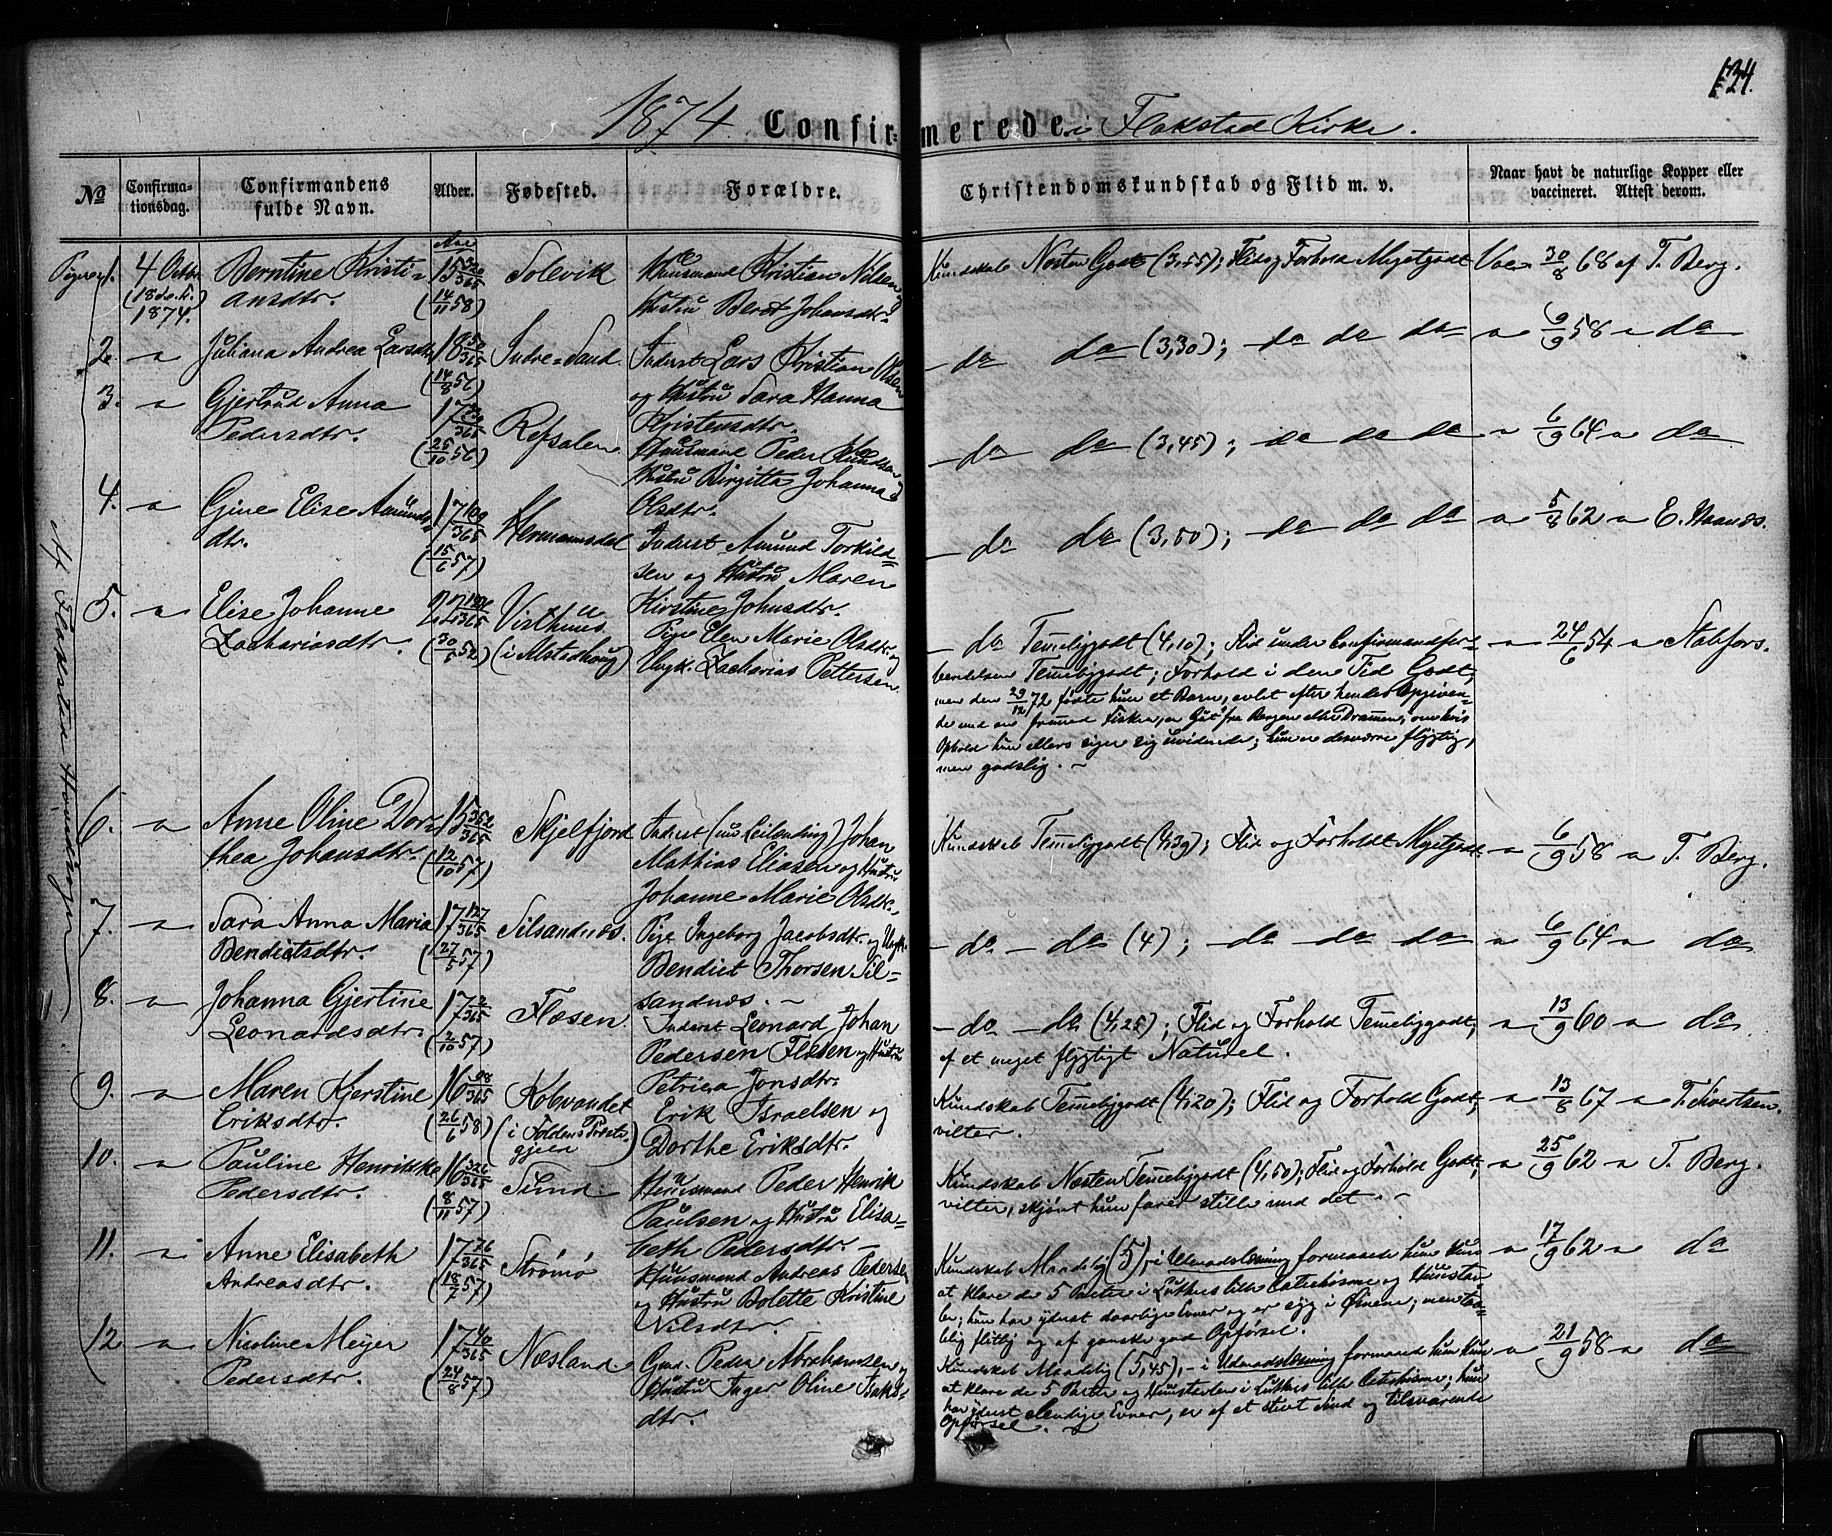 134.
1874. Confirmerede i Flakstad Kirke.
No
Confirmationsdag.
Confirmandens fulde Navn.
Alder.
Fødested.
Forældre.
Christendomskundskab og Flid m. v.
Naar havt de naturlige Kopper eller vaccineret. Attest derom.
Piger
1. 4 Octbr. 1874. Berntine Kristi-
ansdtr. 15 (14/11 58) Solevik Huusmand Kristian Nilsen og
Hustru Berit Johansdtr. Kundskab Næsten Godt (3,55); Flid og Forhold Megetgodt Vac. 30/8 68 af T. Berg.
2. " Juliana Andrea Larsdtr. 18 50/365 (14/8 56) Indre-Sand Inderst Lars Kristian Olsen
og Hustru Sara Hanna
Kristensdtr. - do do (3,30); do do do " 6/9 58 " do
3. " Gjertrud Anna
Pedersdtr. 17 (25/10 56) Refsalen Huusmand Peder Knudsen og
Hustru Birgitta Johanna
Olsdtr. - do do (3,45); do do do " 6/9 64 " do
4. " Gine Elise Amunds-
dtr. 17 109/365 (15/6 57) Hermannsdal Inderst Amund Torkild-
sen og Hustru Maren
Kirstine Johnsdtr. - do do (3,50); do do do " 5/8 62 " E. Haands.
5. " Elise Johanne
Zachariasdtr. 22 (30/5 52) Visthnes
(i Alstadhoug) Pige Elen Marie Olsdtr. og
Ungk. Zacharias Pettersen. - do Temeliggodt (4,10); Flid under Confirmandfor-
beredelsen Temeliggodt; Forhold i den Tid Godt,
men den 29/12 72 fødte hun et Barn, avlet efter hendes Opgiven-
de med en fremmed Fisker, en Gut fra Bergen eller Drammen, om hvis
Ophold hun ellers siger sig uvidende; hun er desværre flygtig,
men godslig. - " 24/6 54 " Stabfors.
6. " Anne Oline Dor-
thea Johansdtr. 15 352/365 (12/10 57) Skjelfjord Inderst (nu Leilending) Johan
Mathias Eliasen og Hustru
Johanne Marie Olsdtr. Kundskab Temeliggodt (4,39); Flid og Forholdt Megetgodt. " 6/9 58 " T. Berg.
7. " Sara Anna Maria
Bendictsdtr. 17 127/365 (27/5 57) Silsandnes. Pige Ingeborg Jacobsdtr. og Ungk.
Bendict Thorsen Sil-
sandnes. - - do - do (4); do do do " 6/9 64 " do
8. " Johanna Gjertine
Leonardsdtr. 17 2/365 (2/10 57) Flæsen Inderst Leonard Johan
Pedersen Flæsen og Hustru
Petrica Jonsdtr. - do - do (4,25); Flid og Forhold Temeliggodt,
af et meget flygtigt Naturel. " 13/9 60 " do
9. " Maren Kjerstine
Eriksdtr. 16 98/365 (26/6 58) Kobvandet
(i Foldens Præste-
gjeld) Erik Israelsen og
Dorthe Eriksdtr. Kundskab Temeliggodt (4,20); Flid og Forhold Godt,
vilter. " 13/8 67 " T. Sivertsen.
10. " Pauline Henrikke
Pedersdtr. 16 326/365 (8/11 57) Sund Huusmand Peder Henrik
Paulsen og Hustru Elisa-
beth Pedersdtr. - Kundskab Næsten Temeliggodt (4,60); Flid og Forhold Godt;
vilter, skjønt hun farer stille med det. - " 25/9 62 " T. Berg.
11. " Anne Elisabeth
Andreasdtr. 17 76/365 (18/7 57) Strømø Huusmand Andreas Pedersen
og Hustru Bolette Kristine
Nilsdtr. Kundskab Maadelig (5), i Udenadslæsning formaaede hun kun
at klare de 5 Parter i Luthers lille Catechisme og Huustav-
len; hun har yderst daarlige Evner og er syg i Øinene; men taa-
lelig flittig og af ganske god Opførsel. " 17/9 62 " do
12. " Nicoline Meyer
Pedersdtr. 17 40/365 (24/8 57) Næsland Gmd. Peder Abrahamsen og
Hustru Inger Oline Isaks-
dtr. Kundskab Maadelig (5,45), - i Udenadslæsning formaaede hun kun
at klare de 5 Parter og Huustavlen i Luthers lille Catechisme; hun
har yderst elendige Evner, er af et stivt Sind og tilsvarende
Opførsel. " 21/9 58 " do
Af Flakstad Hovedsogn